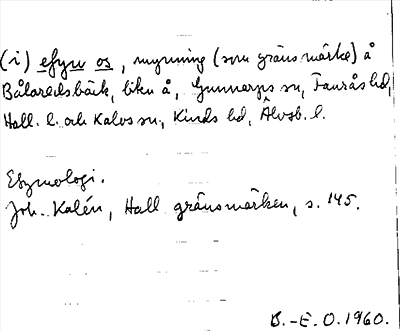 (i) efyu os, mynning (som gränsmärke) å
Bålaredsbäck, liku å, Gunnarps sn, Faurås hd,
Hall. l. och Kalvs sn, Kinds hd, Älvsb. l.
Etymologi.
Joh. Kalén, Hall gränsmärken, s. 145.
B.-E. O. 1960.